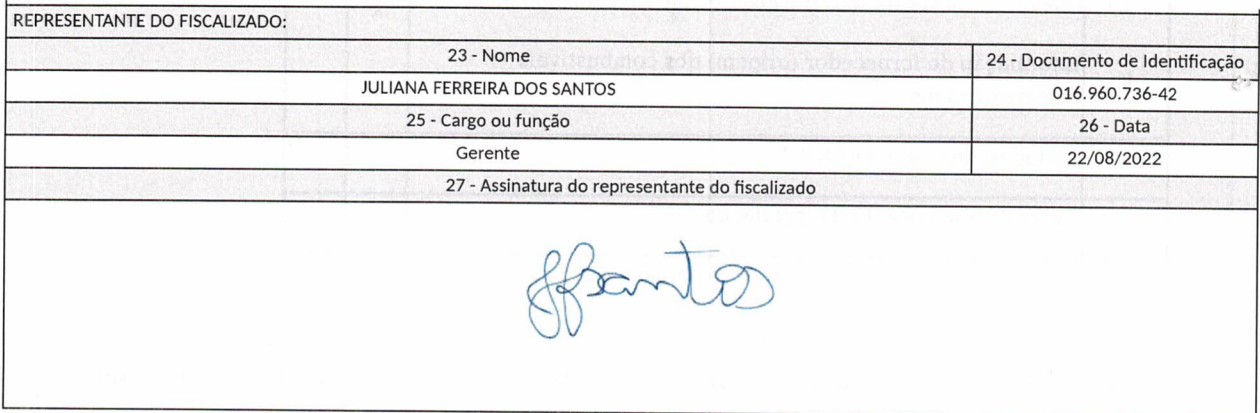 REPRESENTANTE DO FISCALIZADO:
23 - Nome
24 - Documento de Identificação
JULIANA FERREIRA DOS SANTOS
016.960.736-42
25 - Cargo ou função
26 - Data
Gerente
22/08/2022
27 - Assinatura do representante do fiscalizado
JfSantos